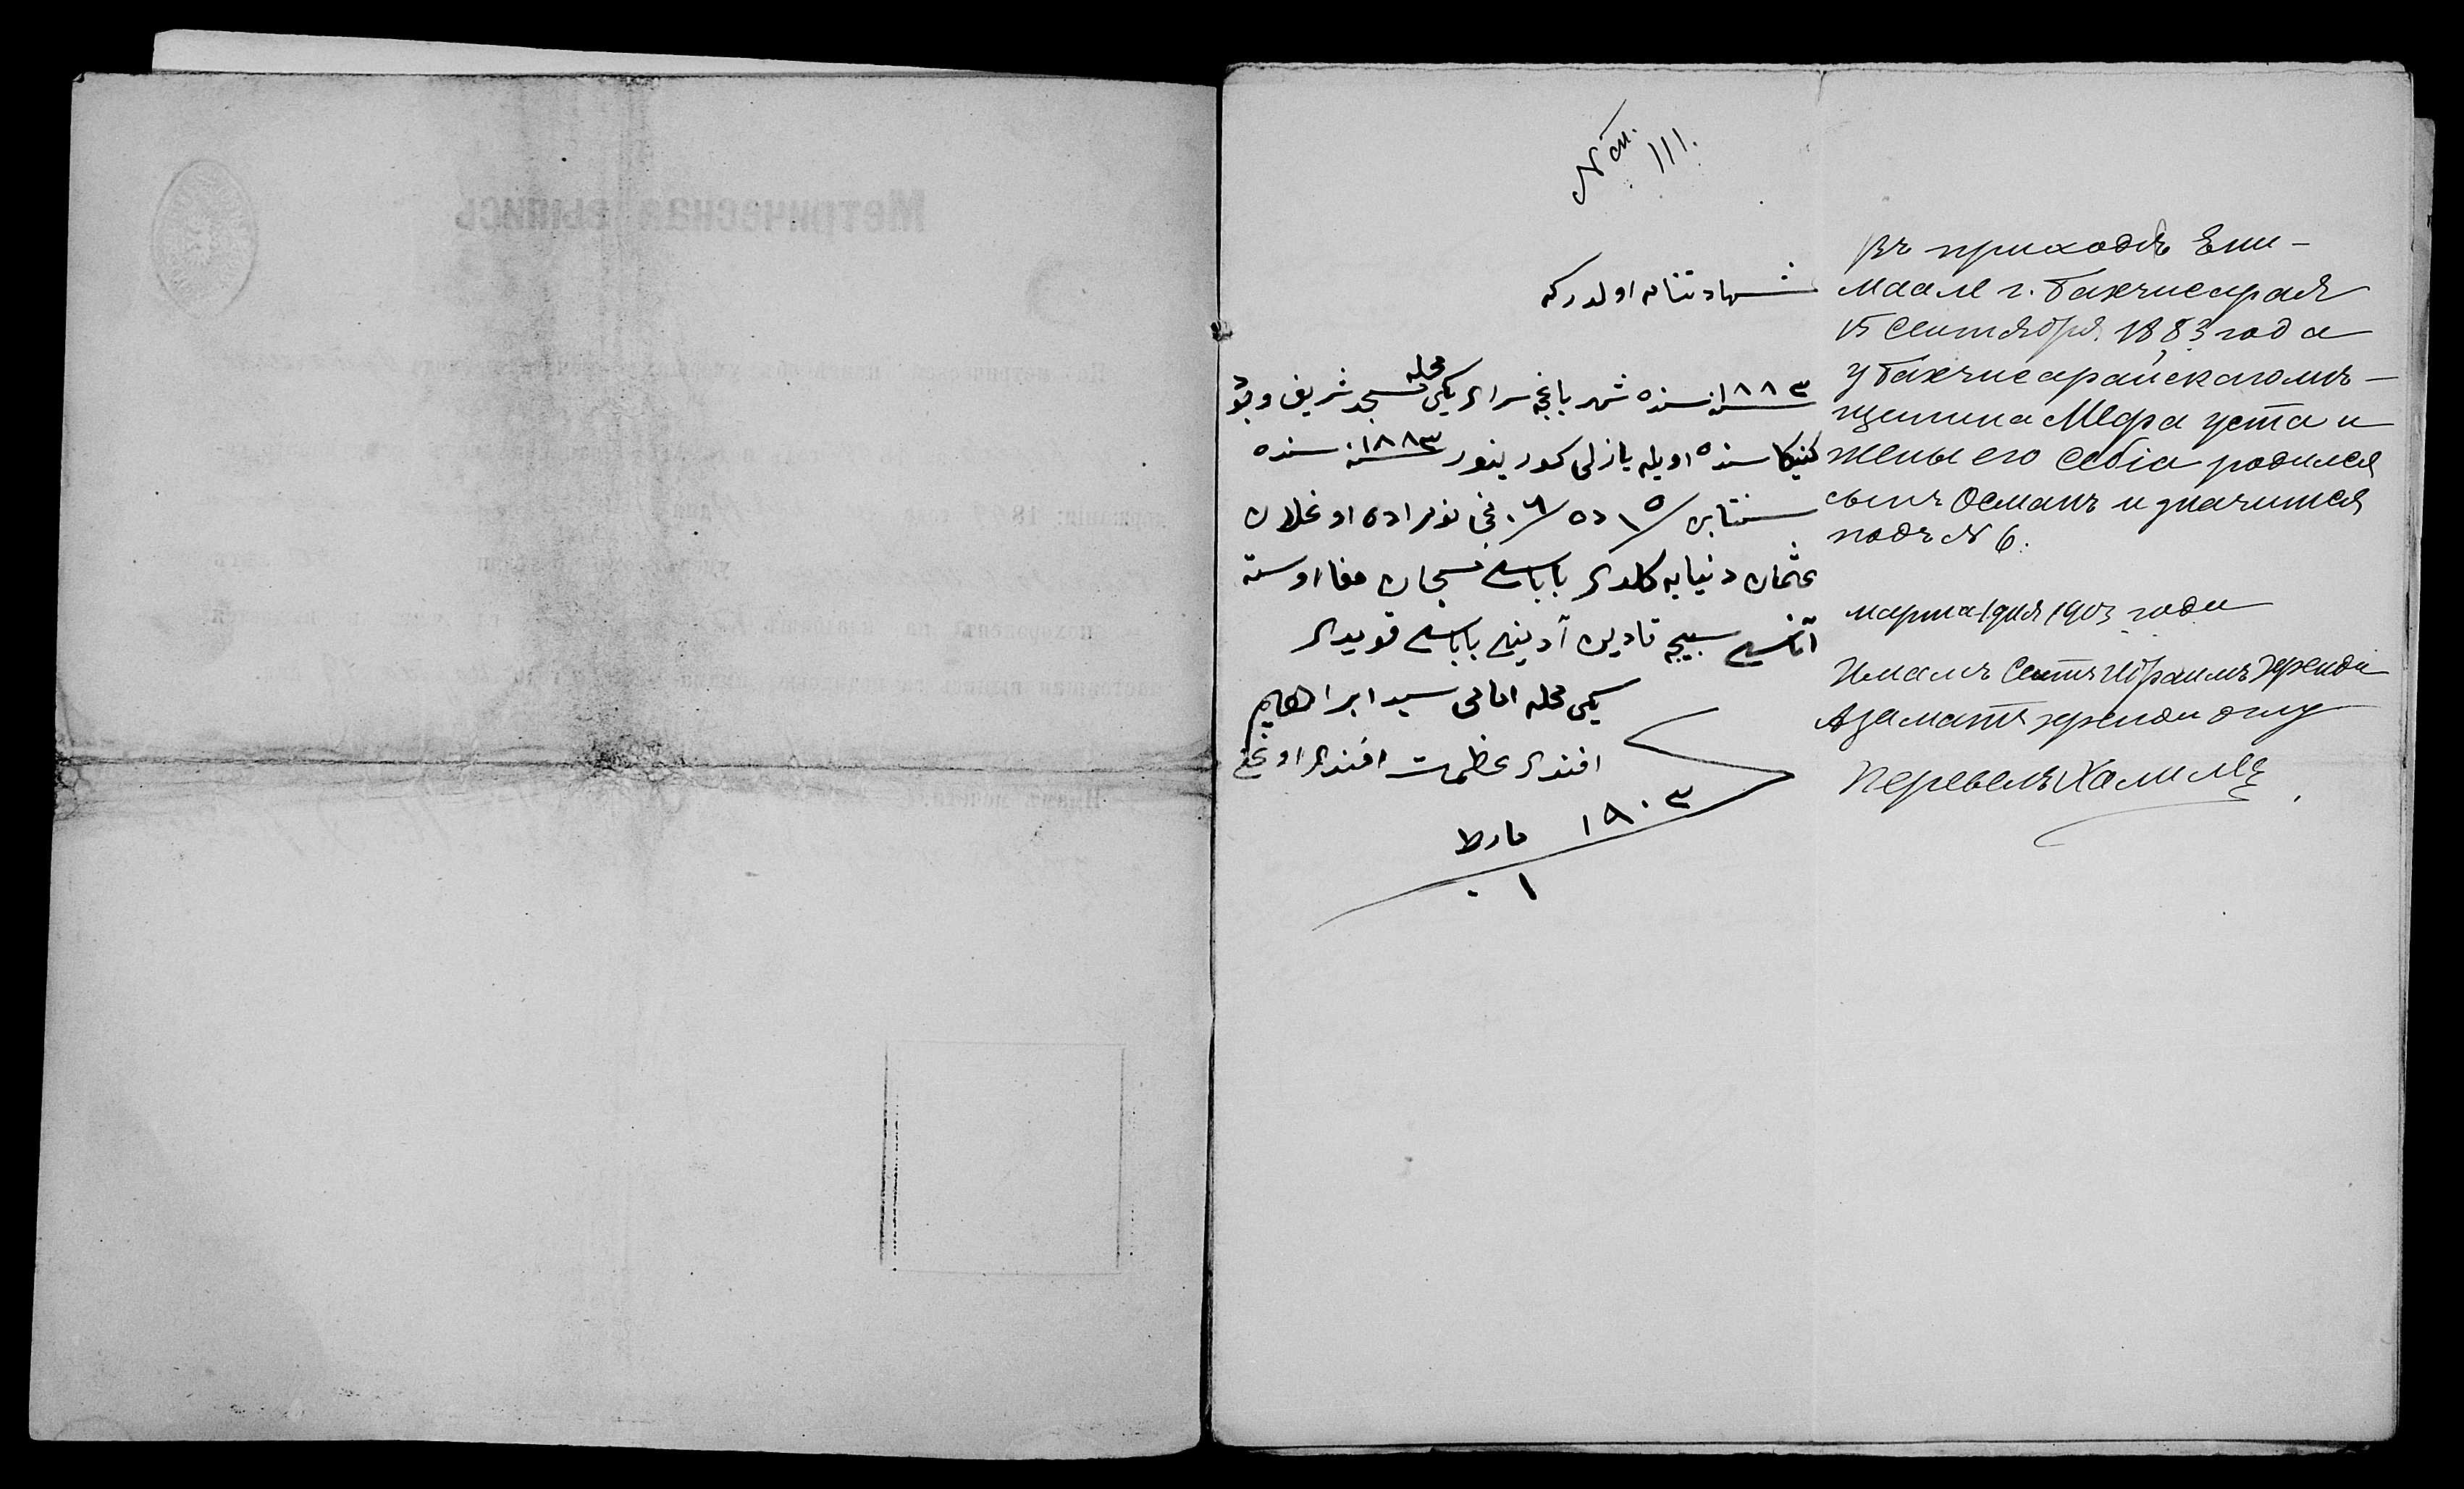 Метрическая выпись
№ ст. 111.
شهادتنامه اولدركه
۱۸۸۳ سنه‌سنده شهر باغچه‌سرای یکی محله مسجد شریف
كنیكاسنده اویله یازلی كورینور ۱۸۸۳ سنه‌سنده
سنتابر ۱۵ ده ۰۶ نجی نومراده اوغلان
عثمان دنیایه كلدی باباسی مسیحان مفا اوسته
آناسی سبیجه قادین آدینی باباسی قویدی
یكی محله امامی سید ابراهیم
افندی عظمت افندی اوغلی
۱۹۰۳ مارط
۱
Въ приходѣ Ени-
маале г. Бахчисарая
15 Сентября 1883 года
у Бахчисарайскаго мѣ-
щанина Мефа уста и
жены его Себіа родился
сынъ Османъ и значится
подъ № 6.
марта 1 дня 1903 года
Имамъ Сеитъ Ибраимъ эфенди
Азаматъ эфенди оглу
Перевелъ Халилев